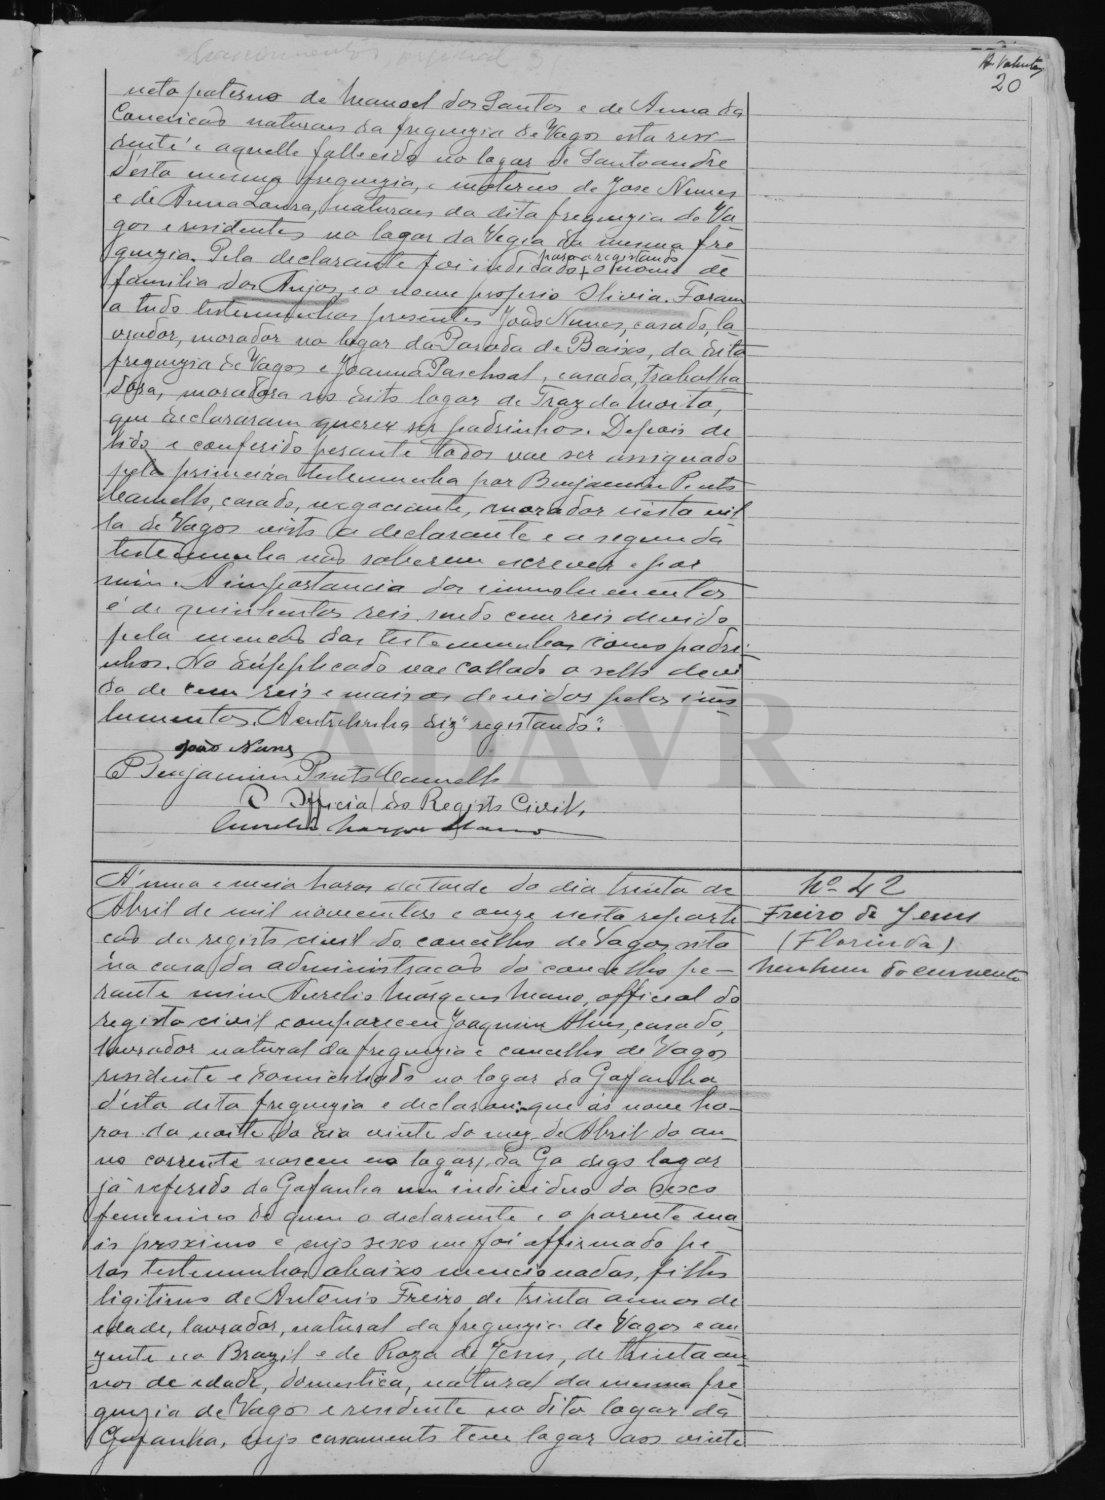 20
neto paterno de Manoel dos Santos e de Anna da
Conceicão naturaes da freguezia de Vagos esta resi-
dente e aquelle fallecido no logar de Santo andre
d'esta mesma freguezia, e materno de Jose Nunes
e de Anna Laura, naturaes da dita freguezia de Va
gos e residentes no logar da Vegia da mesma fre
guezia. Pela declarante foi indicado + o nome de
para o registando
familia dos Anjos, e o nome proprio Olivia. Foram
a tudo testemunhas presentes João Nunes, casado, la
vrador, morador no logar da Parada de Baixo, da dita
freguezia de Vagos e Joanna Paschoal, casada, trabalha
dora, moradora no dito logar de Traz da Moita,
que declararam querer ser padrinhos. Depois de
lido e conferido perante todos vae ser assignado
pela primeira testemunha por Benjamim Pinto
Camello, casado, negociante, morador nesta vil
la de Vagos visto a declarante e a segunda
testemunha não saberem escrever e por
mim. A importancia dos emmolumentos
é de quinhentos reis sendo cem reis devido
pela menção das testemunhas como padri-
nhos. No dúpplicado vae collado o sello devi
do de cem reis e mais os devidos pelos emo
lumentos. A entrelinha diz "registando".
João Nunes
Benjamim Pinto Camello
O Official do Registo Civil,
ADAVR
A' uma e meia horas da tarde do dia trinta de
Abril de mil novecentos e onze nesta reparti
ção do registo civil do concelho de Vagos sita
na casa da administração do concelho pe-
rante mim Aurelio Marques Mano, official do
registo civil compareceu Joaquim Alves, casado,
lavrador natural da freguezia e concelho de Vagos
residente e domiciliado no logar da Gafanha
d'esta dita freguezia e declarou: que ás nove ho-
ras da noite do dia vinte do mez de Abril do an-
no corrente nasceu no logar, da Ga digo logar
já referido da Gafanha um individuo do sexo
femenino de quem o declarante e o parente ma
is proximo e cujo sexo me foi affirmado pe
las testemunhas abaixo mencionadas, filho
ligitimo de Antonio Freiro de trinta annos de
edade, lavrador, natural da freguezia de Vagos e au
zente no Brazil e de Roza de Jesus, de trinta an
nos de edade, domestica, natural da mesma fre
guezia de Vagos e residente no dito logar da
Gafanha, cujo casamento teve logar aos vinte
Nº 42
Freiro de Jesus
(Florinda)
Nenhum documento